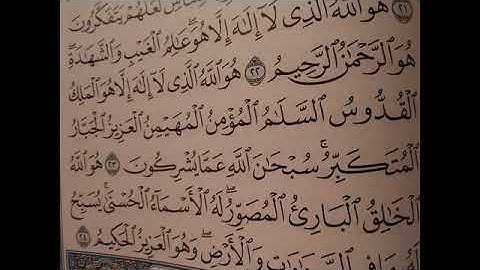 لِلنَّاسِ لَعَلَّهُمْ يَتَفَكَّرُونَ ٢١ هُوَ ٱللَّهُ ٱلَّذِى لَآ إِلَٰهَ إِلَّا هُوَ ۖ عَٰلِمُ ٱلْغَيْبِ وَٱلشَّهَٰدَةِ ۖ
هُوَ ٱلرَّحْمَٰنُ ٱلرَّحِيمُ ٢٢ هُوَ ٱللَّهُ ٱلَّذِى لَآ إِلَٰهَ إِلَّا هُوَ ٱلْمَلِكُ
ٱلْقُدُّوسُ ٱلسَّلَٰمُ ٱلْمُؤْمِنُ ٱلْمُهَيْمِنُ ٱلْعَزِيزُ ٱلْجَبَّارُ
ٱلْمُتَكَبِّرُ ۚ سُبْحَٰنَ ٱللَّهِ عَمَّا يُشْرِكُونَ ٢٣ هُوَ ٱللَّهُ
ٱلْخَٰلِقُ ٱلْبَارِئُ ٱلْمُصَوِّرُ ۖ لَهُ ٱلْأَسْمَآءُ ٱلْحُسْنَىٰ ۚ يُسَبِّحُ
لَهُۥ مَا فِى ٱلسَّمَٰوَٰتِ وَٱلْأَرْضِ ۖ وَهُوَ ٱلْعَزِيزُ ٱلْحَكِيمُ ٢٤